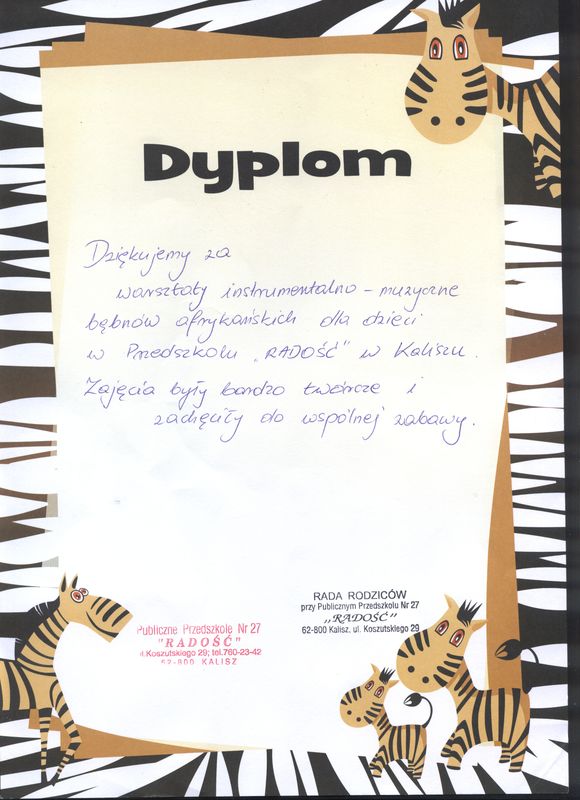 Dyplom
Dziękujemy za
warsztaty instrumentalno - muzyczne
bębnów afrykańskich dla dzieci
w Przedszkolu „RADOŚĆ" w Kaliszu.
Zajęcia były bardzo twórcze i
zachęciły do wspólnej zabawy.
Publiczne Przedszkole Nr 27
"RADOŚĆ"
ul.Koszutskiego 29; tel.760-23-42
62-800 KALISZ
RADA RODZICÓW
przy Publicznym Przedszkolu Nr 27
„RADOŚĆ"
62-800 Kalisz, ul. Koszutskiego 29